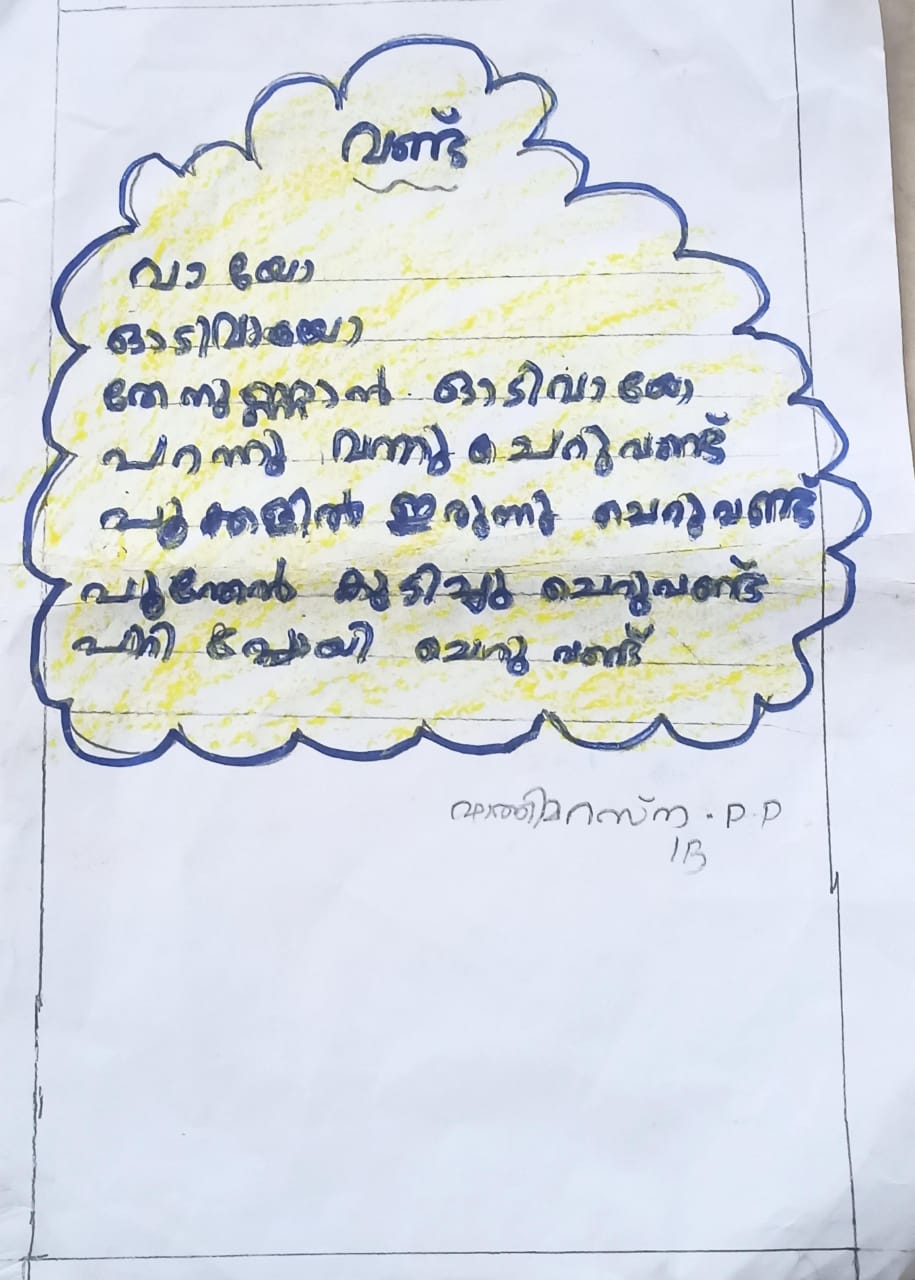 വണ്ട്
വായോ
ഓടിവായോ
തേനുണ്ണാൻ ഓടിവായോ
പറന്നു വന്നു ചെറുവണ്ട്
പൂക്കളിൽ ഇരുന്നു ചെറുവണ്ട്
പൂന്തേൻ കുടിച്ചു ചെറുവണ്ട്
പാറി പോയി ചെറു വണ്ട്
ഫാത്തിമറസ്ന . P.P
1B